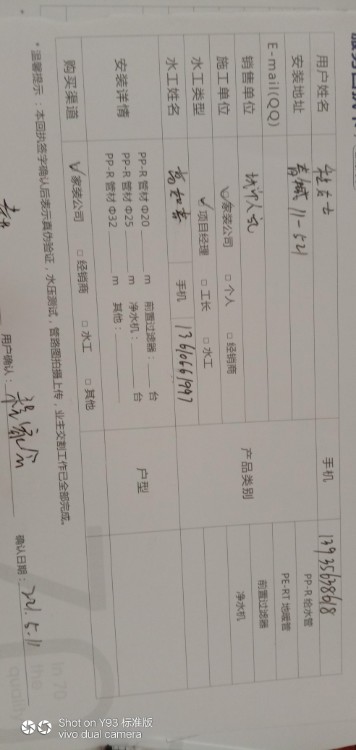 用户姓名
手机 13935638618
安装地址 11-521
PP-R 给水管
E-mail(QQ)
PE-RT 地暖管
销售单位
产品类别
前置过滤器
施工单位 ✓家装公司 □ 个人 □ 经销商
净水机
水工类型 ✓项目经理 □ 工长 □ 水工
水工姓名
手机 13610661997
安装详情
PP-R 管材 Φ20 m 前置过滤器: 台
PP-R 管材 Φ25 m 净水机: 台
PP-R 管材 Φ32 m 其他:
户型
购买渠道 ✓家装公司 □ 经销商 □ 水工 □ 其他
*温馨提示:本回执签字确认后表示真伪验证,水压测试,管路图拍摄上传,业主交割工作已全部完成。
用户确认:
确认日期: 221.5.11
Shot on Y93 标准版
vivo dual camera